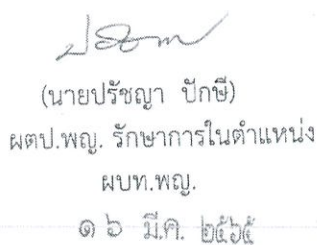 (นายปรัชญา ปักษี)
ผตป.พญ. รักษาการในตำแหน่ง
ผบท.พญ.
๑๖ มี.ค. ๒๕๖๕